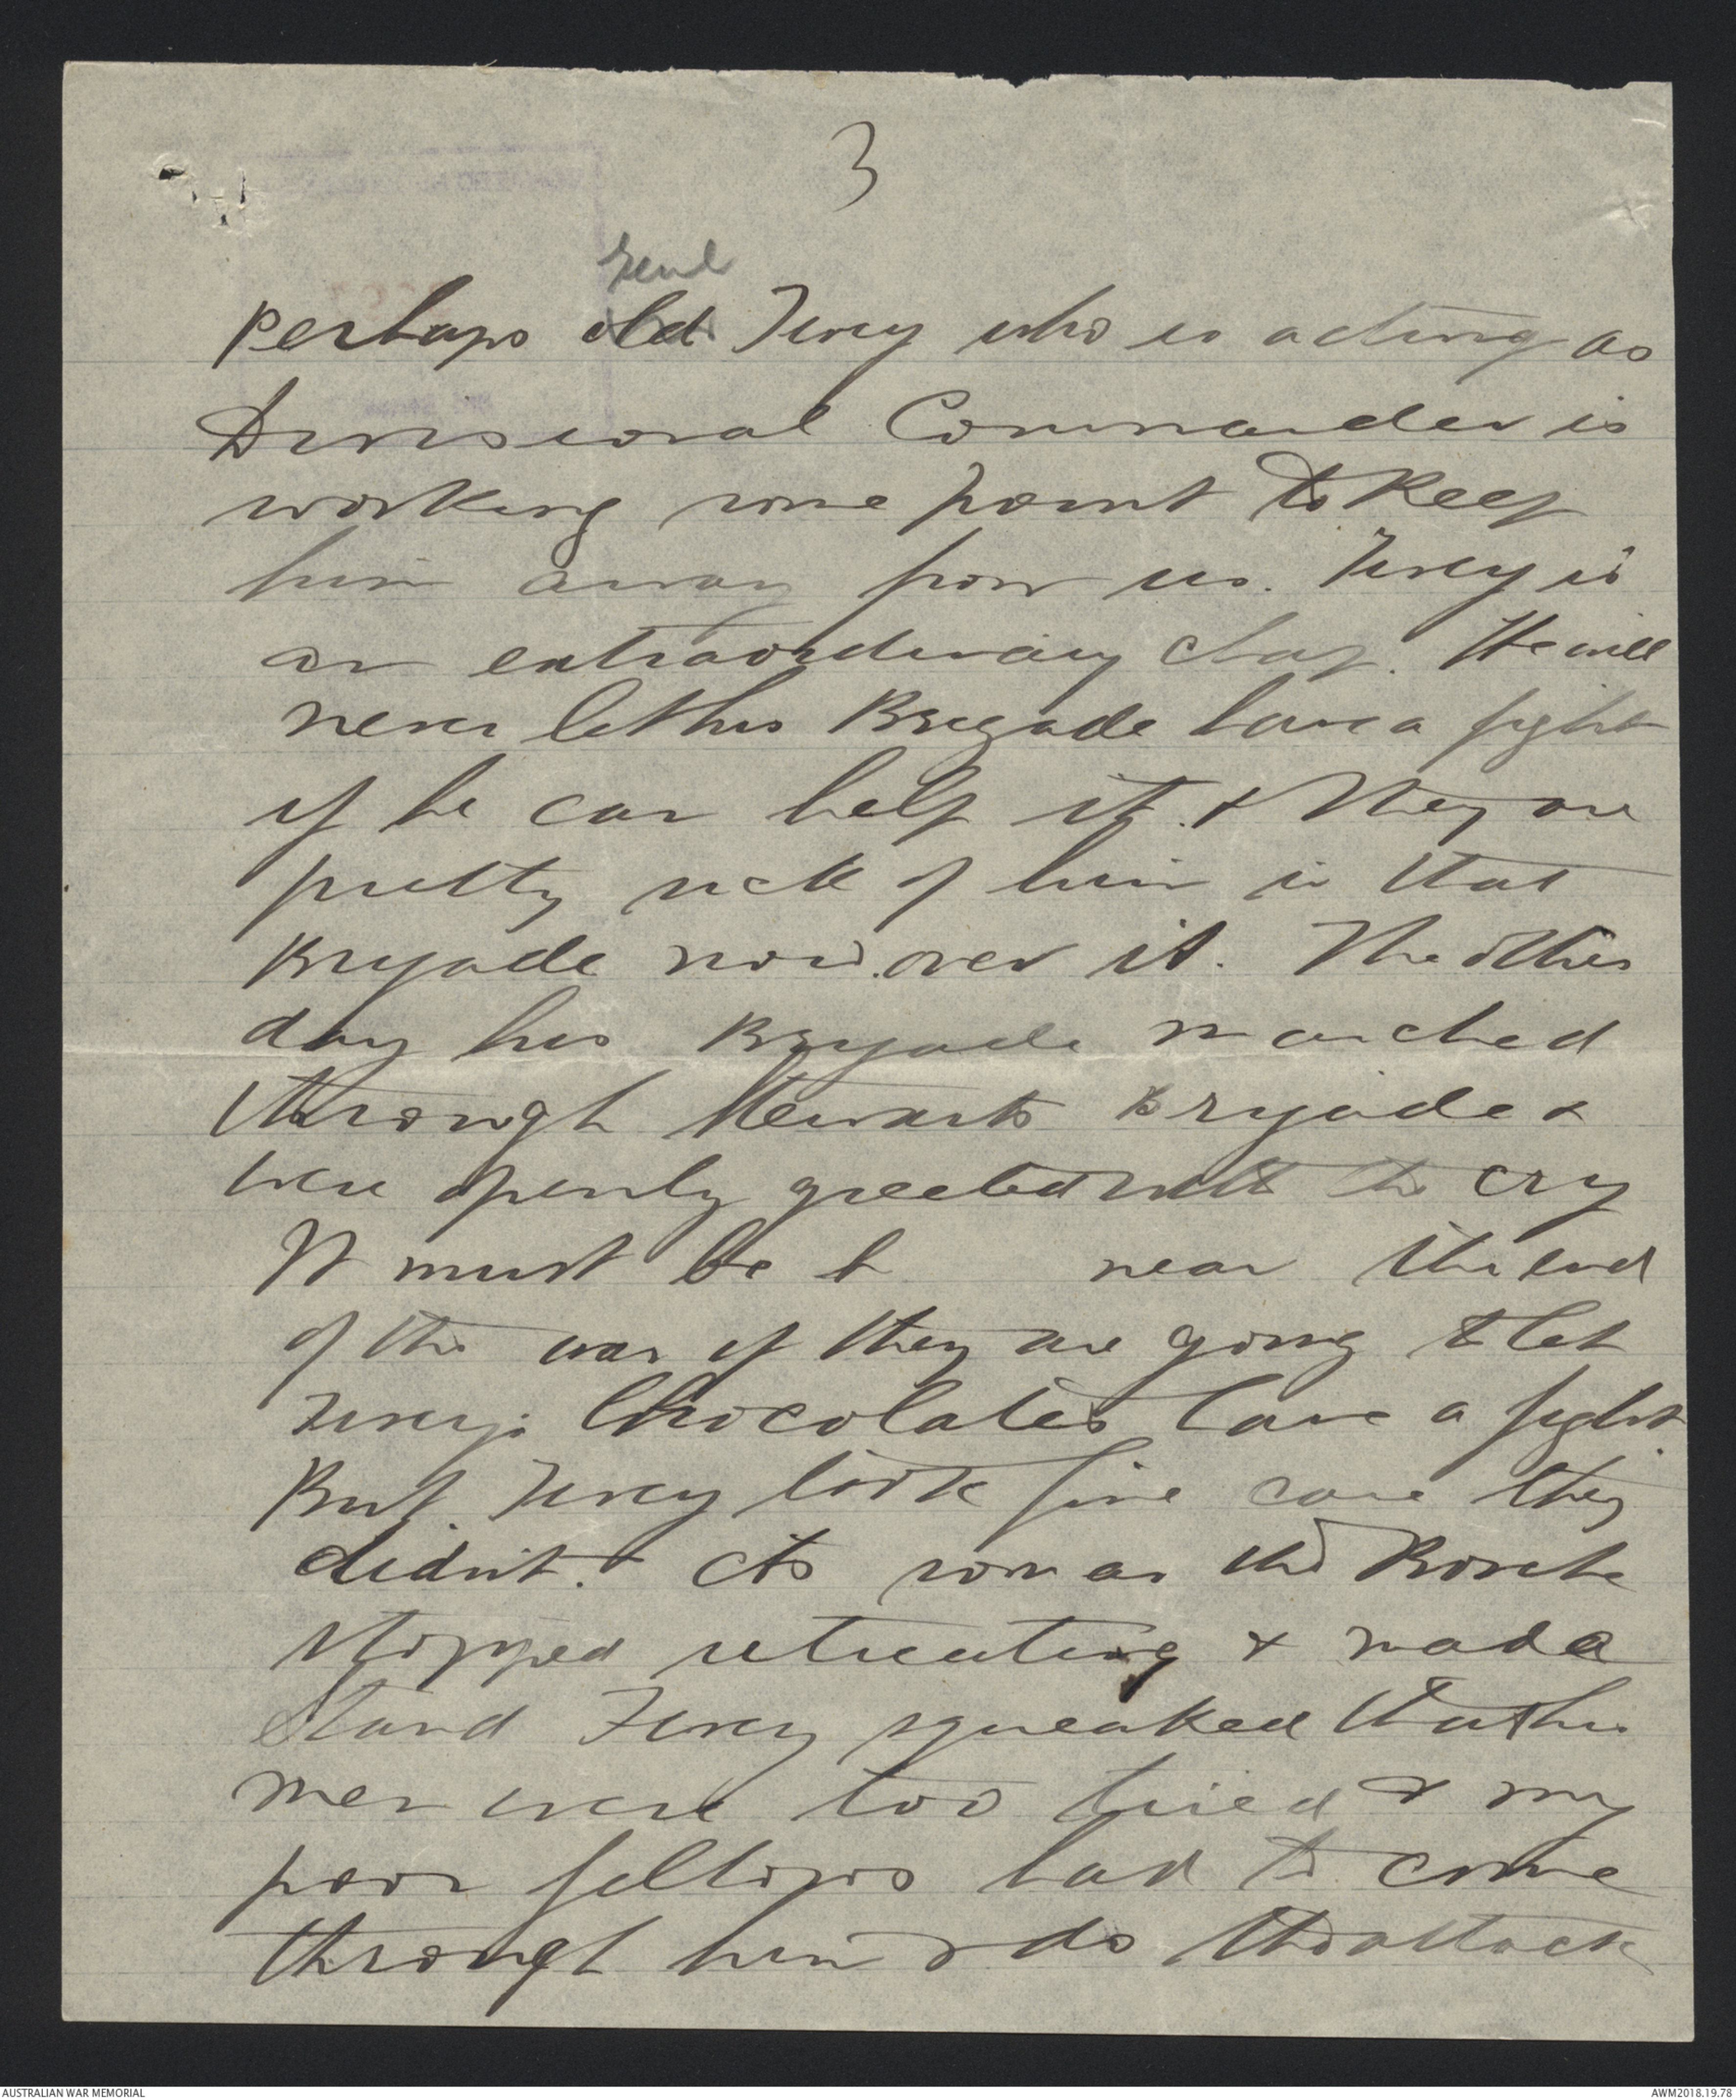 3
Genl
perhaps old Tivey who is acting as
Divisional Commander is
working some point to keep
him away from us. Tivey is
an extraordinary chap. He will
never let his Brigade have a fight
if he can help it. & they are
pretty sick of him in that
Brigade now over it. The other
day his Brigade marched
through Stewarts Brigade &
were openly greeted with the cry
It must be b near the end
of the war if they are going to let
Tivey's Chocolates have a fight.
But Tivey took fine care they
didn't. As soon as the Bosche
stopped retreating & made a
stand Tivey squeaked that his
men were too tired & my
poor fellows had to come
through him & do the attack
AUSTRALIAN WAR MEMORIAL
AWM2018.19.78